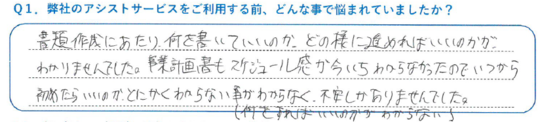 Q1. 弊社のアシストサービスをご利用する前、どんな事で悩まれていましたか？
書類作成にあたり、何を書いていいのか、どの様に進めればいいのかが
わかりませんでした。事業計画書もスケジュール感が今いちわからなかったのでいつから
初めたらいいのか、とにかくわからない事がわからなく、不安しかありませんでした。
(何をすればいいのかがわからない)